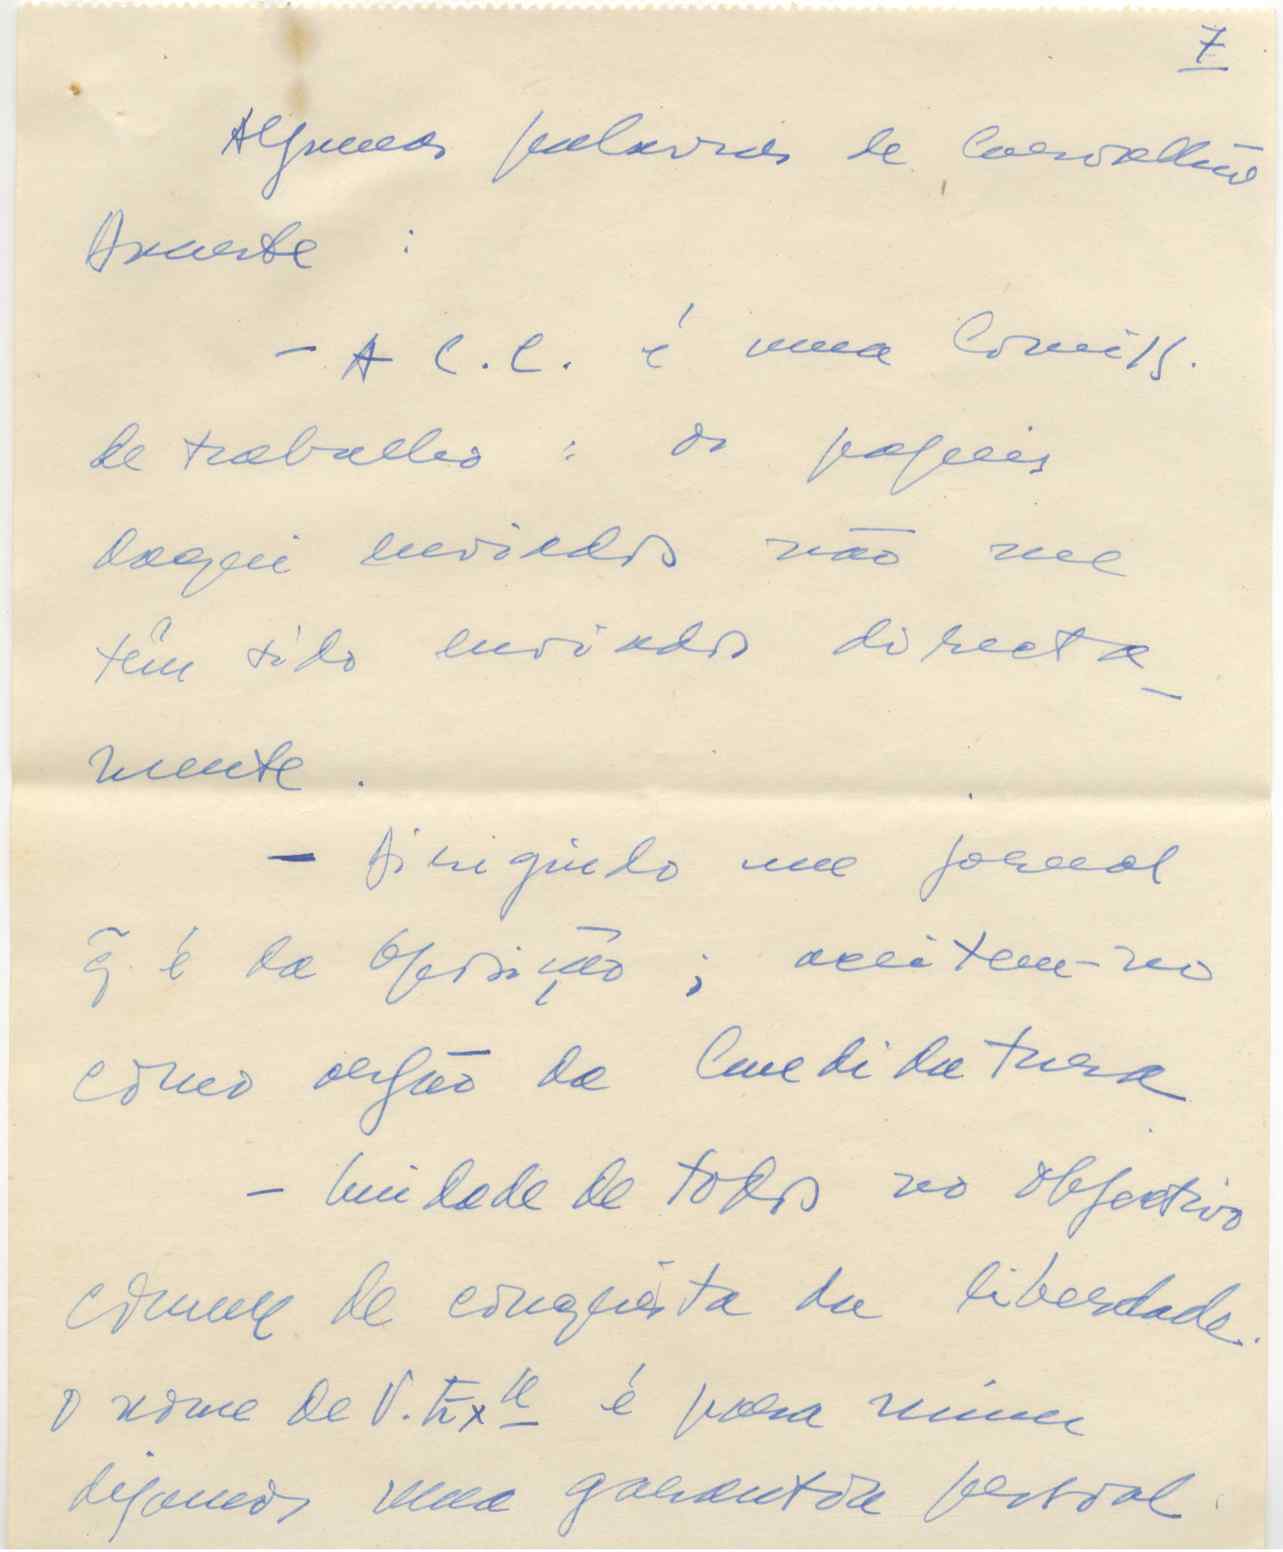 7
Algumas palavras de Carvalhão
Duarte :
- A C.C. é uma Comiss.
de trabalho : os papeis
daqui enviados não me
têm sido enviados directa-
mente .
- Dirigindo um jornal
q̃ é da Oposição ; aceitem-no
como orgão da Candidatura
- Unidade de todos no objectivo
comum de conquista da liberdade.
O nome de V. Exª é para mim
digamos uma garantia pessoal.